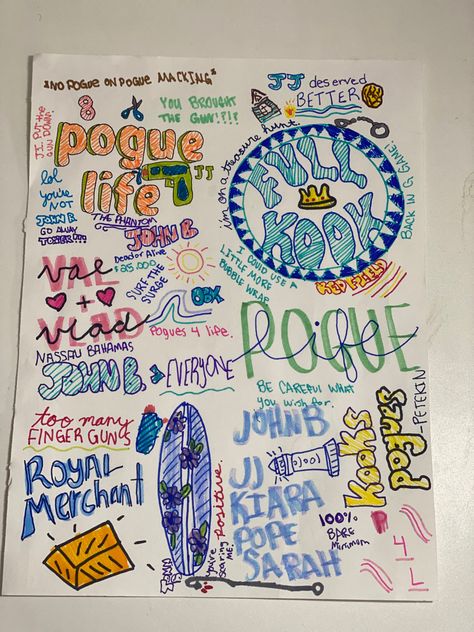 "NO POGUE ON POGUE MACKING"
JJ deserved
BETTER
JJ, PUT THE GUN DOWN!
8
YOU BROUGHT
THE GUN!?!?
pogue
life
JJ
im on a treasure hunt
FULL
KOOK
BACK IN G GAME!
lol
you're
NOT
JOHN B.
GO AWAY
TOBER!!!
THE PHANTOM
JOHN B
Dead or Alive
$25,000
I COULD USE A
LITTLE MORE
BUBBLE WRAP
REDFIELD
VAL
+
Vlad
SURF THE
SURGE
OBX
Pogues 4 life.
POGUE
life
NASSAU BAHAMAS
JOHN B.
EVERYONE
BE CAREFUL WHAT
you wish for.
too many
FINGER GUNS
JOHN B
JJ
KIARA
POPE
SARAH
Kooks
pogues
-PETERKIN
ROYAL
Merchant
you're scaring me!
positive.
100%
BARE
Minimum
P
4
L